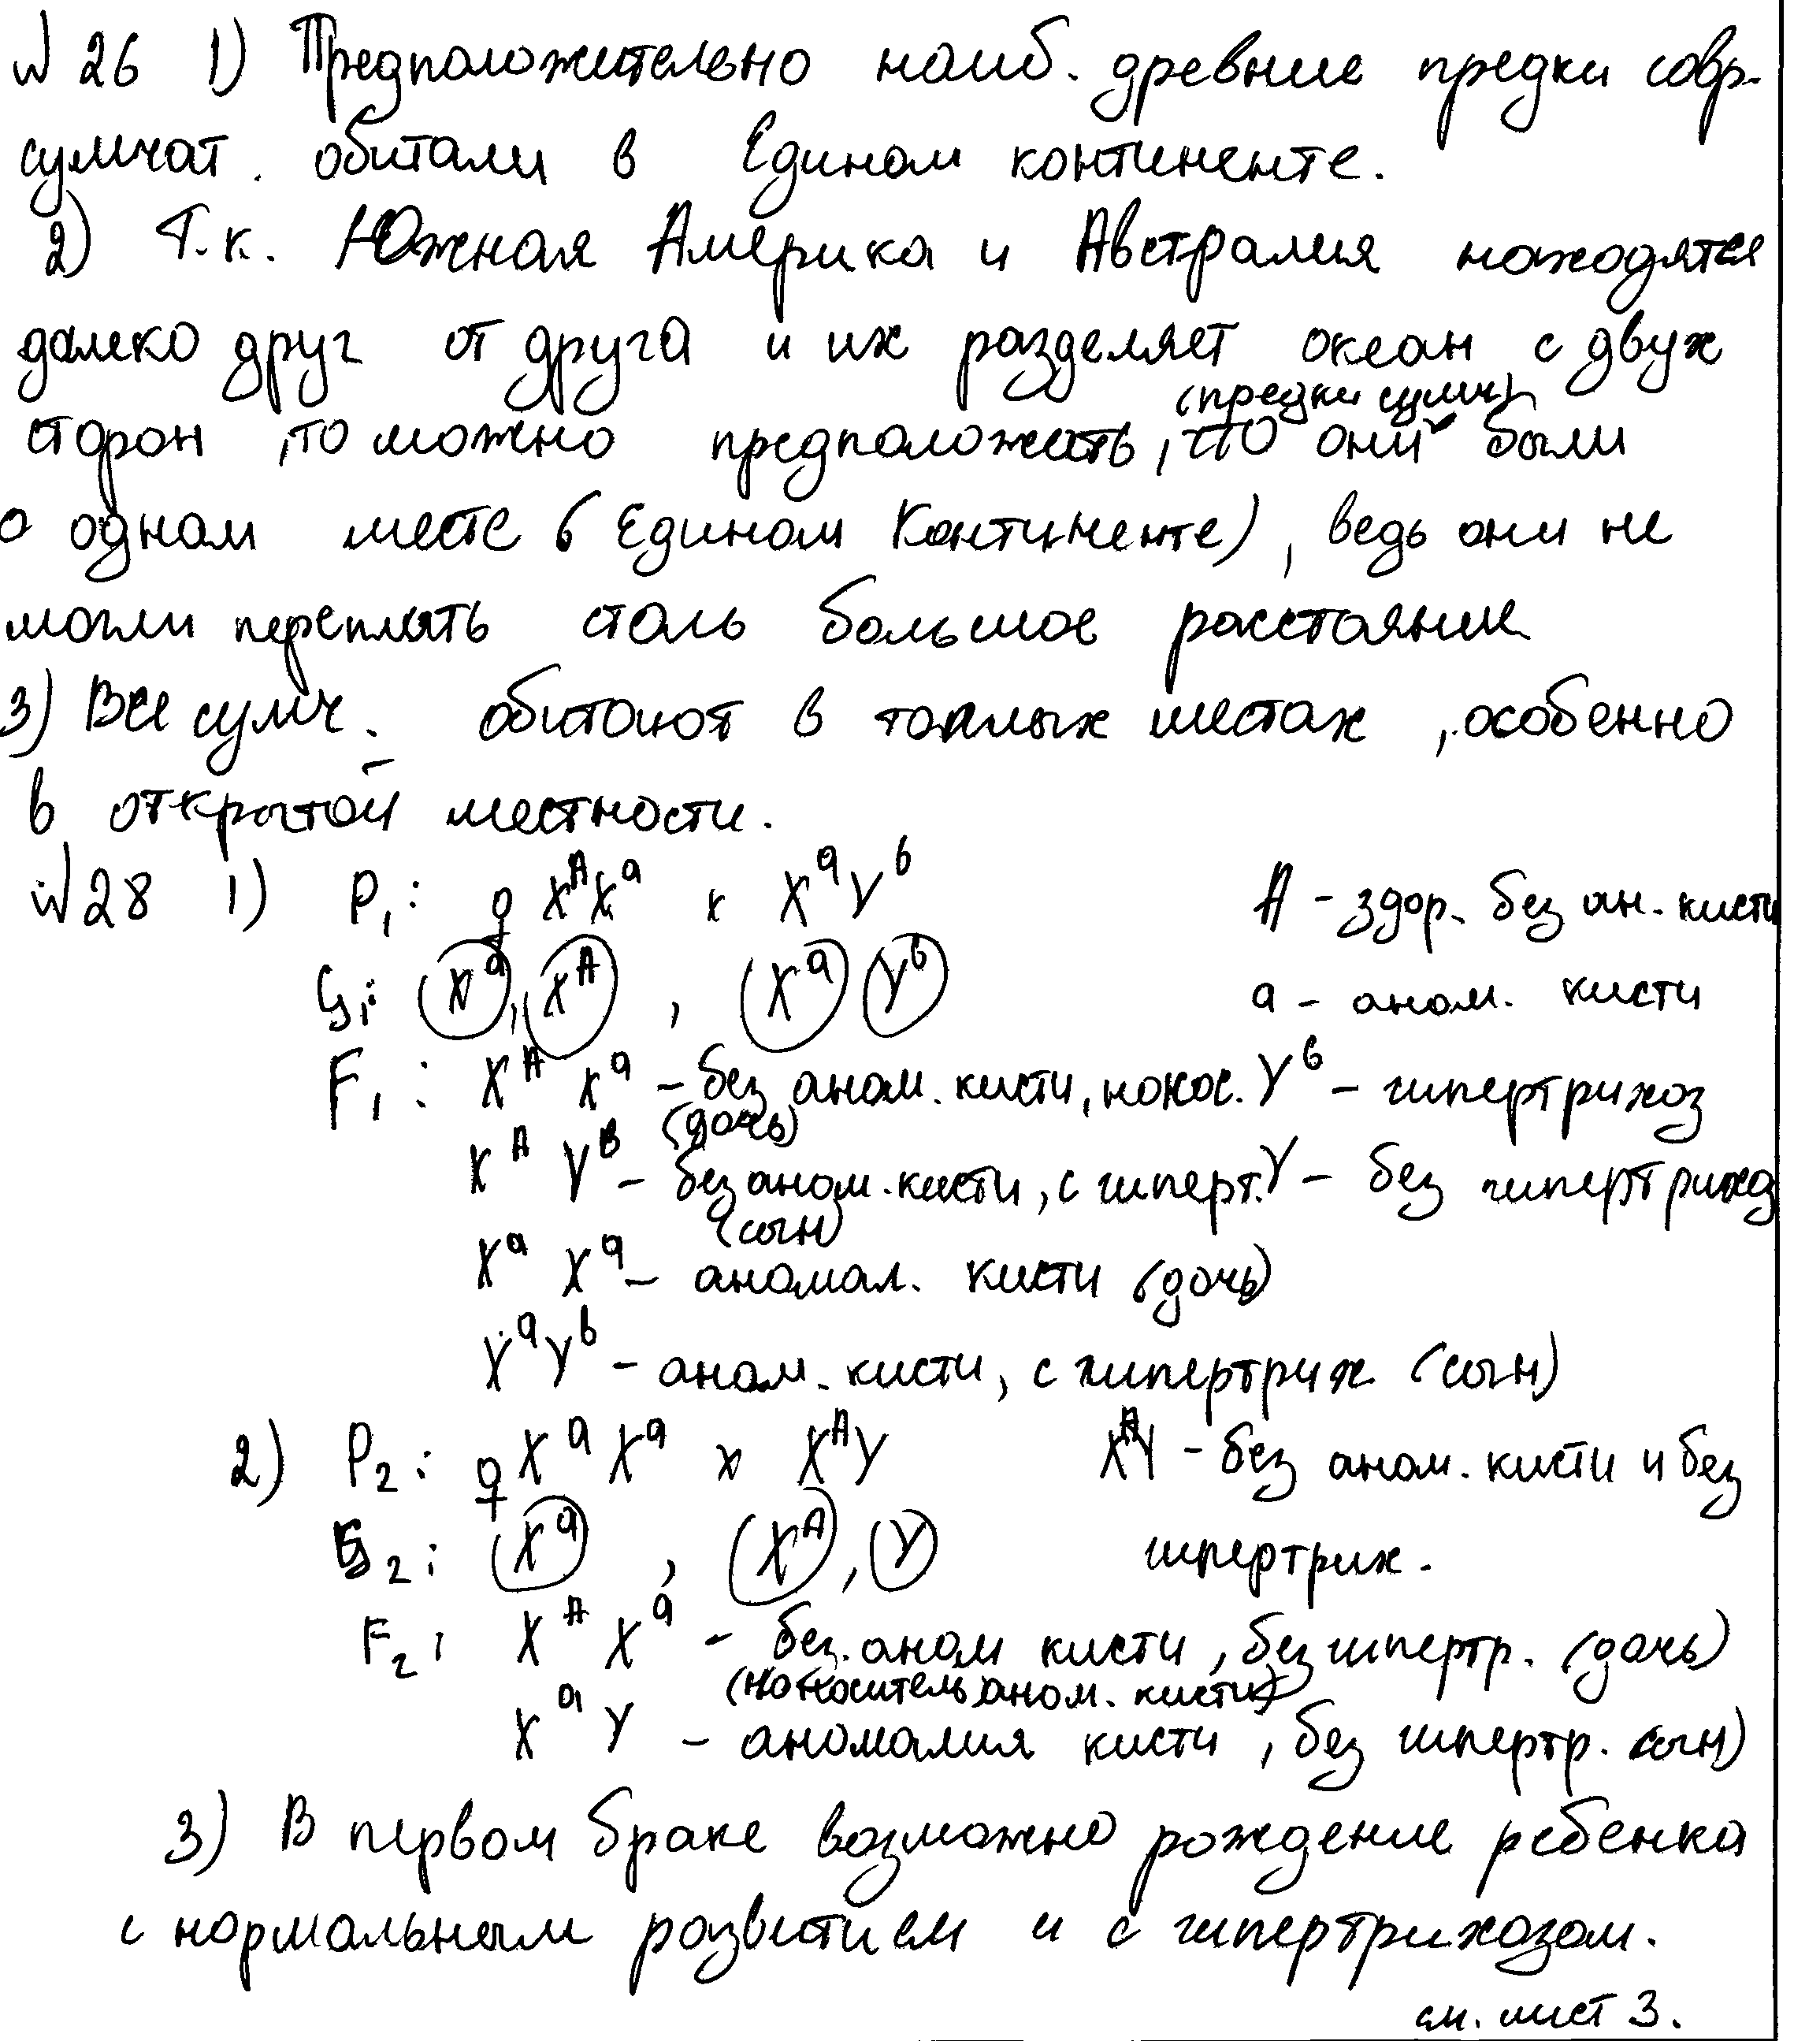 № 26 1) Предположительно наиб. древние предки совр.
сумчат. обитали в Едином континенте.
2) Т.к. Южная Америка и Австралия находятся
далеко друг от друга и их разделяет океан с двух
(предки сумч)
сторон, то можно предположить, что они были
в одном месте (Едином Континенте), ведь они не
могли переплыть столь большое расстояние
3) Все сумч. обитают в теплых местах, особенно
в открытой местности.
№ 28 1) P₁: ♀ XᴬXᵃ x XᵃYᵇ A - здор. без ан. кисти
G₁: (Xᵃ), (Xᴬ) , (Xᵃ) (Yᵇ) a - аном. кисти
F₁: Xᴬ Xᵃ - без аном. кисти, нокос. Yᵇ - гипертрихоз
(дочь)
Xᴬ Yᵇ - без аном. кисти, с гиперт. Y - без гипертрихоз
(сын)
Xᵃ Xᵃ - аномал. кисти (дочь)
XᵃYᵇ - аном. кисти, с гипертрих (сын)
2) P₂: ♀ Xᵃ Xᵃ x XᴬY XᴬY - без аном. кисти и без
G₂: (Xᵃ) , (Xᴬ), (Y) гипертрих.
F₂: Xᴬ Xᵃ - без. аном кисти, без гипертр. (дочь)
(носитель аном. кисти)
Xᵃ Y - аномалия кисти, без гипертр. (сын)
3) В первом браке возможно рождение ребенка
с нормальным развитием и с гипертрихозом.
см. лист 3.